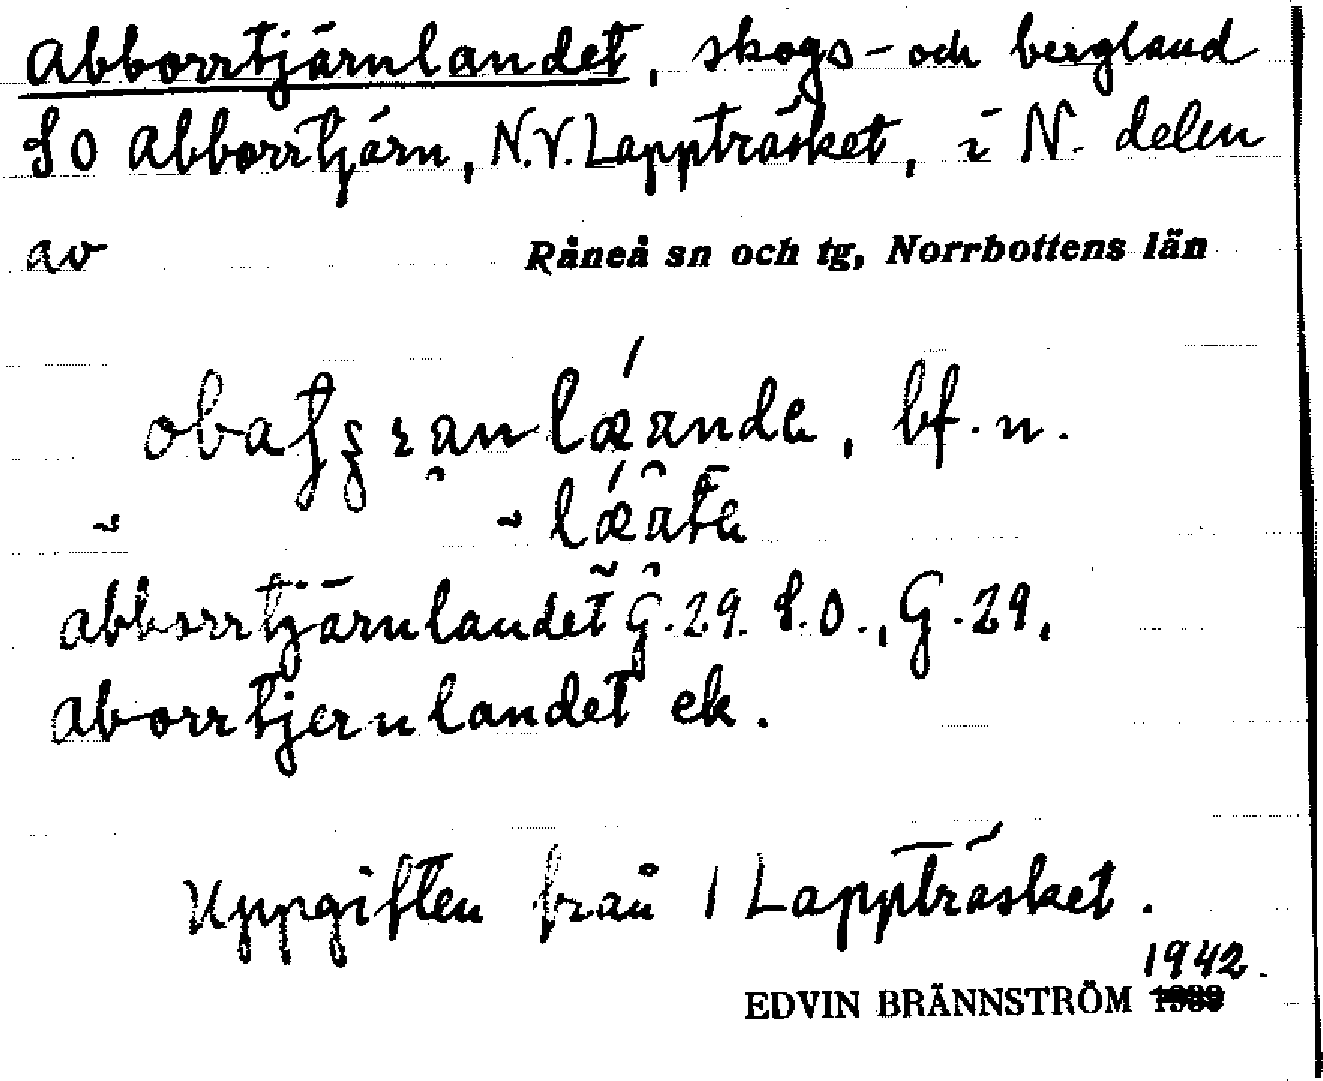 Abborrtjärnlandet, skogs- och bergland
SO Abborrtjärn, N.V. Lappträsket, i N. delen
av Råneå sn och tg, Norrbottens län
bf. n.
Abborrtjärnlandet G. 29. S.O., G. 29,
Aborrtjernlandet ek.
Uppgiften från 1 Lappträsket.
1942.
EDVIN BRÄNNSTRÖM